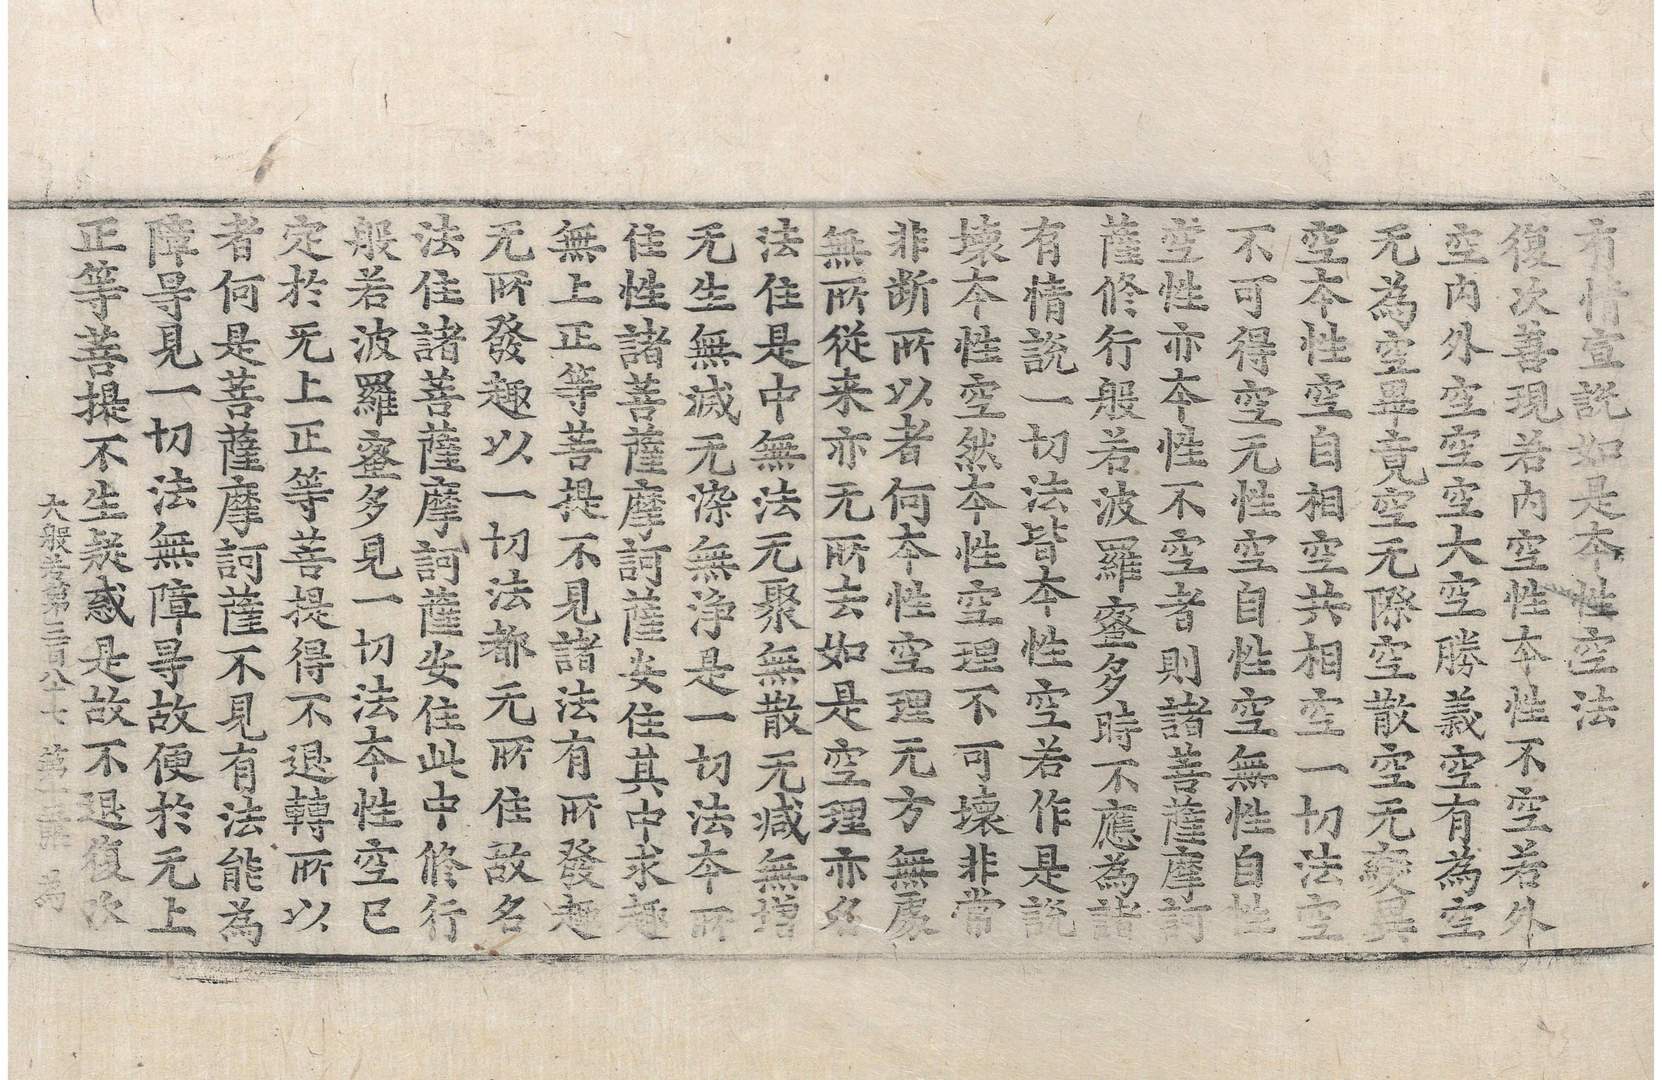 有情宣説如是本性空法
復次善現若内空性本性不空若外
空内外空空空大空勝義空有為空
无為空畢竟空无際空散空无變異
空本性空自相空共相空一切法空
不可得空无性空自性空無性自性
空性亦本性不空者則諸菩薩摩訶
薩修行般若波羅蜜多時不應為諸
有情説一切法皆本性空若作是説
壞本性空然本性空理不可壞非常
非断所以者何本性空理无方無處
無所從来亦无所去如是空理亦名
法住是中無法无聚無散无減無增
无生無滅无染無浄是一切法本所
住性諸菩薩摩訶薩安住其中求趣
無上正等菩提不見諸法有所發趣
无所發趣以一切法都无所住故名
法住諸菩薩摩訶薩安住此中修行
般若波羅蜜多見一切法本性空已
定於无上正等菩提得不退轉所以
者何是菩薩摩訶薩不見有法能為
障㝵見一切法無障㝵故便於无上
正等菩提不生疑惑是故不退復次
大般若第三百八十七 第十三張 為